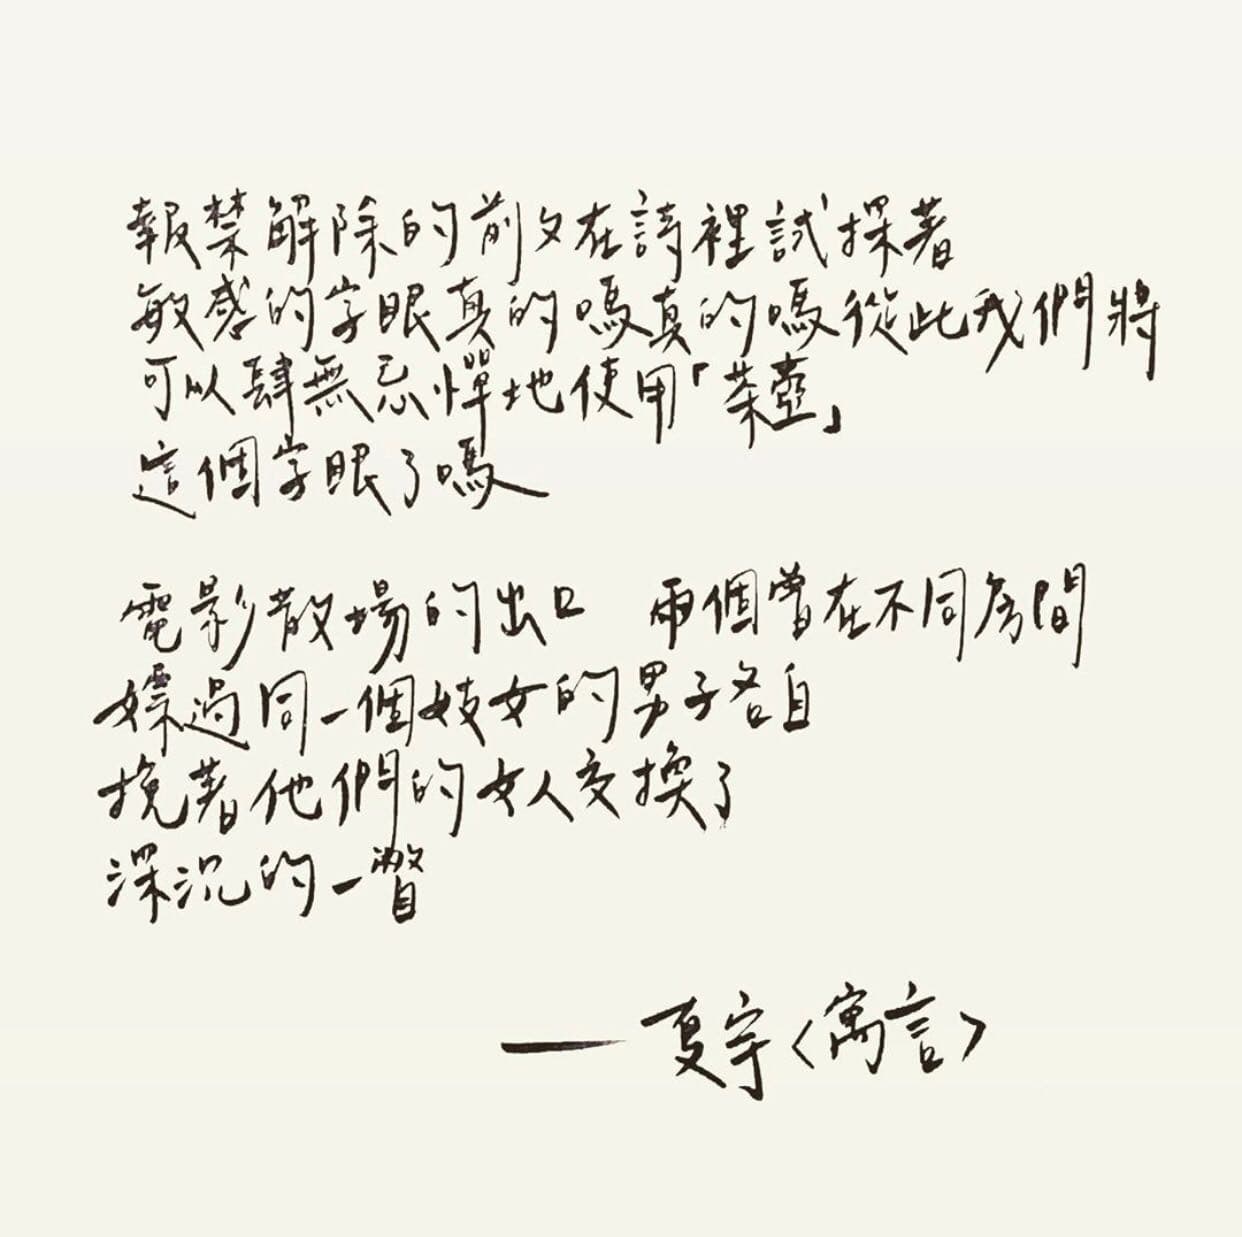 報禁解除的前夕在詩裡試探著
敏感的字眼真的嗎真的嗎從此我們將
可以肆無忌憚地使用「茶壺」
這個字眼了嗎
電影散場的出口　兩個曾在不同房間
嫖過同一個妓女的男子各自
挽著他們的女人交換了
深沉的一瞥
——夏宇〈寓言〉